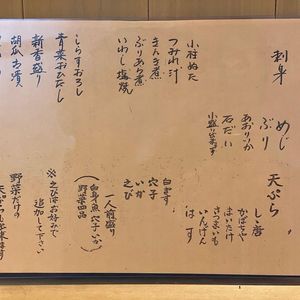 刺身
めじ
ぶり
あおりいか
石だい
小盛り出来ます
小柱ぬた
つみれ汁
きんき煮
ぶりあら煮
いわし塩焼
しらすおろし
青菜おひたし
新香盛り
胡瓜古漬
天ぷら
しし唐
かぼちゃ
まいたけ
さつまいも
いんげん
はす
白きす
穴子
いか
えび
一人前盛り
(白身魚 穴子 いか
野菜四品)
※えびはお好みで
追加して下さい
野菜だけの